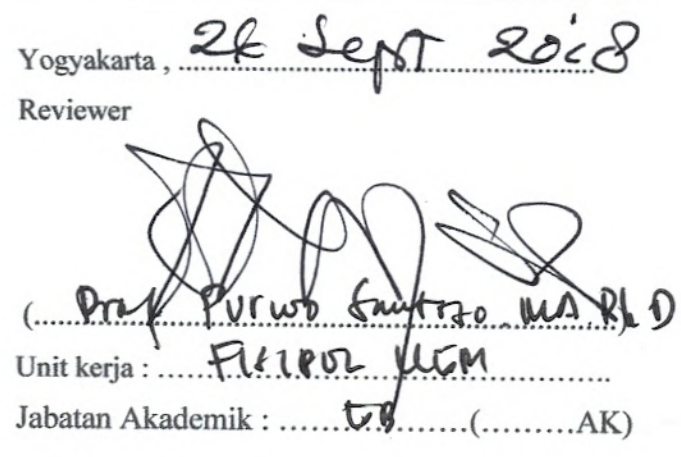 Yogyakarta , Sept 2018
Reviewer
(Prof Purwo Santoso, MA, Ph.D)
Unit kerja : FISIPOL UGM
Jabatan Akademik : GB (.........AK)